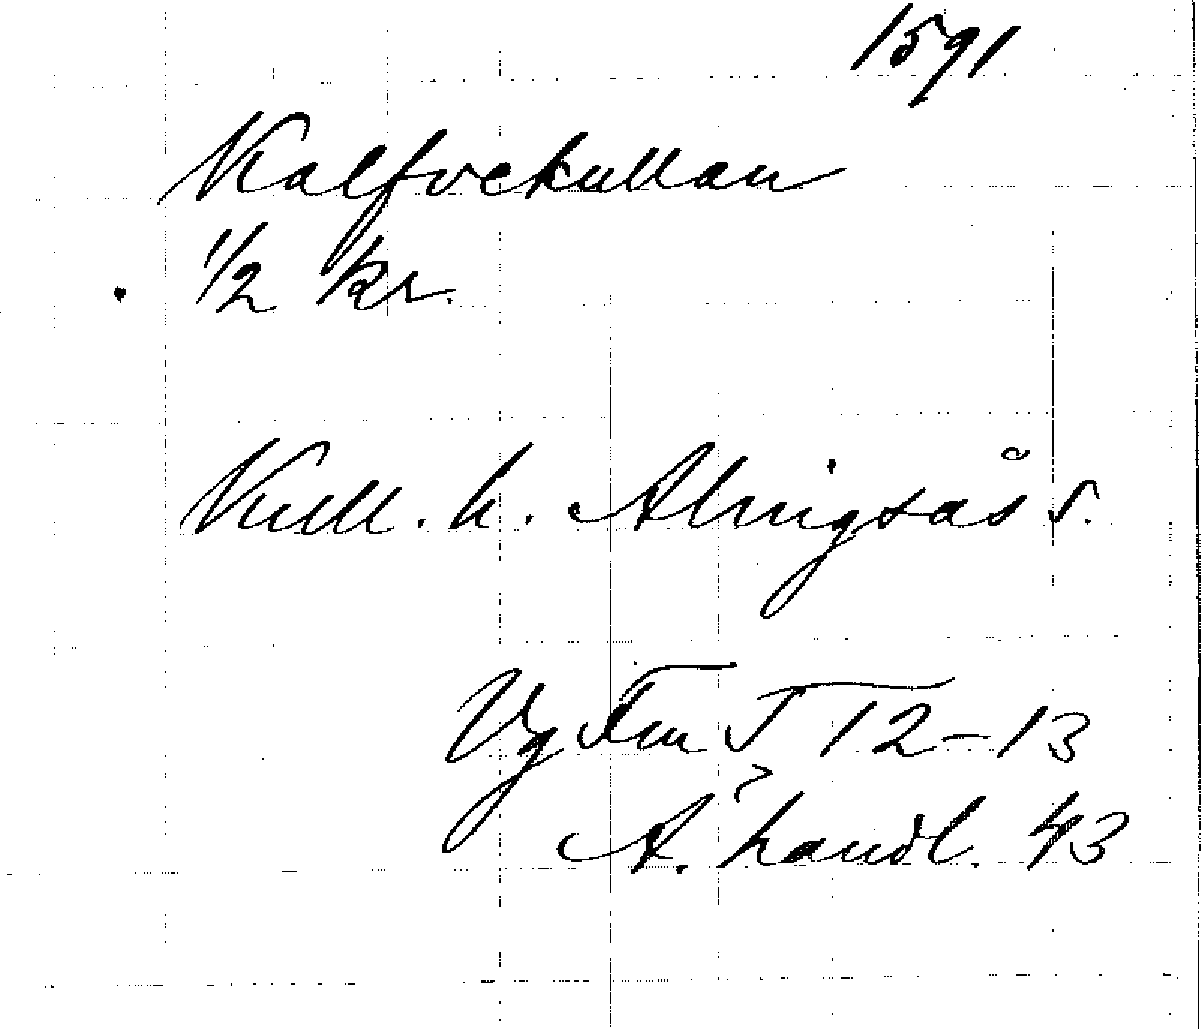 1591
Kalfvekullan
1/2 kr.
Kull. h. Alingsås s.
Vg 12-13
A. handl. 43